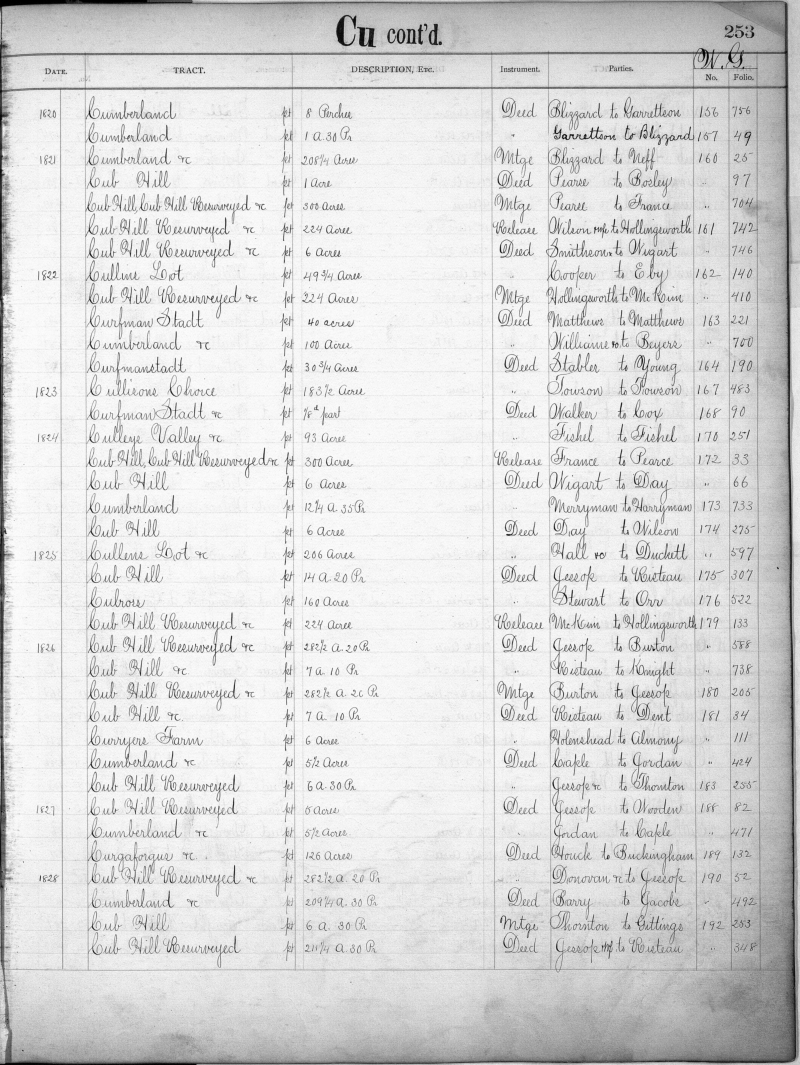 Cu cont'd.
253
W. G.
DATE. TRACT. DESCRIPTION, ETC. Instrument. Parties. No. Folio.
1820 Cumberland pt 8 Perches Deed Blizzard to Garrettson 156 756
Cumberland pt 1 a. 30 Pr " Garrettson to Blizzard 157 49
1821 Cumberland &c pt 208 1/4 Acres Mtge Blizzard to Neff 160 25
Cub Hill pt 1 Acre Deed Pearse to Bosley " 97
Cub Hill, Cub Hill Resurveyed &c pt 300 Acres Mtge Pearse to France " 704
Cub Hill Resurveyed &c pt 224 Acres Release Wilson to Hollingsworth 161 742
Cub Hill Resurveyed &c pt 6 Acres Deed Smithson to Wigart " 746
1822 Cullins Lot pt 49 3/4 Acres " Cooper to Eby 162 140
Cub Hill Resurveyed &c pt 224 Acres Mtge Hollingsworth to McKim " 410
Curfman Stadt pt 40 acres Deed Matthews to Matthews 163 221
Cumberland &c pt 100 Acres " Williams &c to Beyers " 700
Curfmanstadt pt 30 3/4 Acres Deed Stabler to Young 164 190
1823 Cullisons Choice pt 183 1/2 Acres " Towson to Towson 167 483
Curfman Stadt &c pt 1/8th part Deed Walker to Cox 168 90
1824 Culleys Valley &c pt 93 Acres " Fishel to Fishel 170 251
Cub Hill, Cub Hill Resurveyed &c pt 300 Acres Release France to Pearce 172 33
Cub Hill pt 6 Acres Deed Wigart to Day " 66
Cumberland pt 12 1/4 A 35 Pr " Merryman to Harryman 173 733
Cub Hill pt 6 Acres Deed Day to Wilson 174 275
1825 Cullens Lot &c pt 206 Acres " Hall &c to Duckett " 597
Cub Hill pt 14 a. 20 Pr Deed Jessop to Risteau 175 307
Cubrois pt 160 Acres " Stewart to Orr 176 522
Cub Hill Resurveyed &c pt 224 Acres Release McKim to Hollingsworth 179 133
1826 Cub Hill Resurveyed &c pt 282 1/2 a. 20 Pr Deed Jessop to Burton " 588
Cub Hill &c pt 7 a 10 Pr " Risteau to Knight " 738
Cub Hill Resurveyed &c pt 282 1/2 a. 20 Pr Mtge Burton to Jessop 180 205
Cub Hill &c pt 7 a 10 Pr Deed Risteau to Dent 181 34
Curryers Farm pt 6 Acres " Holenshead to Almony " 111
Cumberland &c pt 5 1/2 Acres Deed Caple to Jordan " 424
Cub Hill Resurveyed pt 6 a. 30 Pr " Jessop &c to Thornton 183 255
1827 Cub Hill Resurveyed pt 5 Acres Deed Jessop to Wooden 188 82
Cumberland &c pt 5 1/2 Acres " Jordan to Caple " 471
Curgaforgus &c pt 126 Acres Deed Houck to Buckingham 189 132
1828 Cub Hill Resurveyed &c pt 282 1/2 a 20 Pr " Donovan &c to Jessop 190 52
Cumberland &c pt 209 1/4 A. 30 Pr Deed Barry to Jacobs " 492
Cub Hill pt 6 a. 30 Pr Mtge Thornton to Gittings 192 253
Cub Hill Resurveyed pt 211 1/4 a. 30 Pr Deed Jessop to Risteau " 348